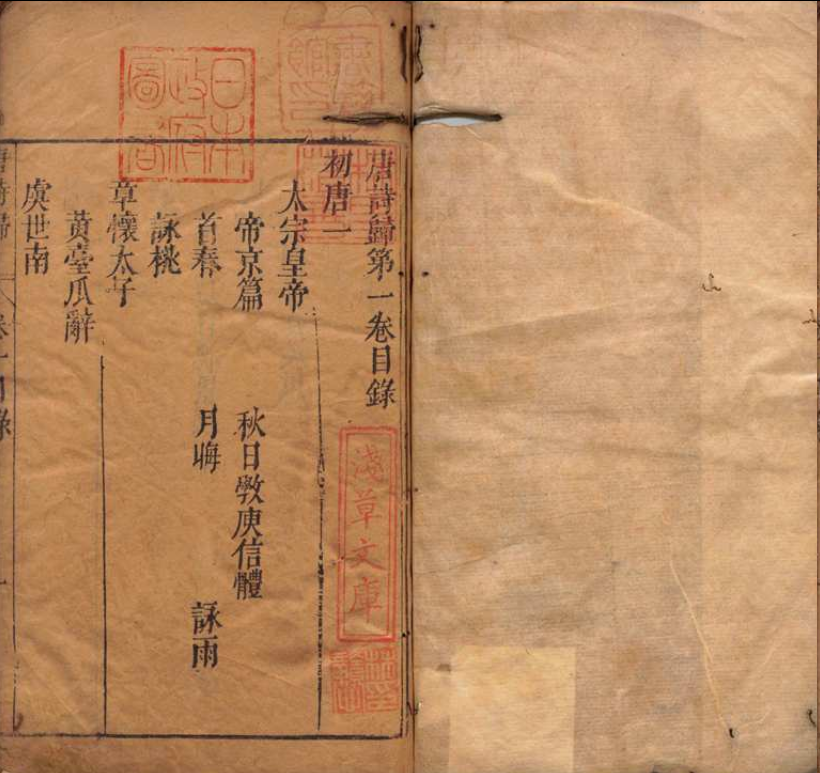 唐詩歸第一卷目錄
初唐一
太宗皇帝
帝京篇 秋日斆庾信體
首春 月晦 詠雨
詠桃
章懷太子
黃臺瓜辭
虞世南
日本
政府
圖書
淺草文庫